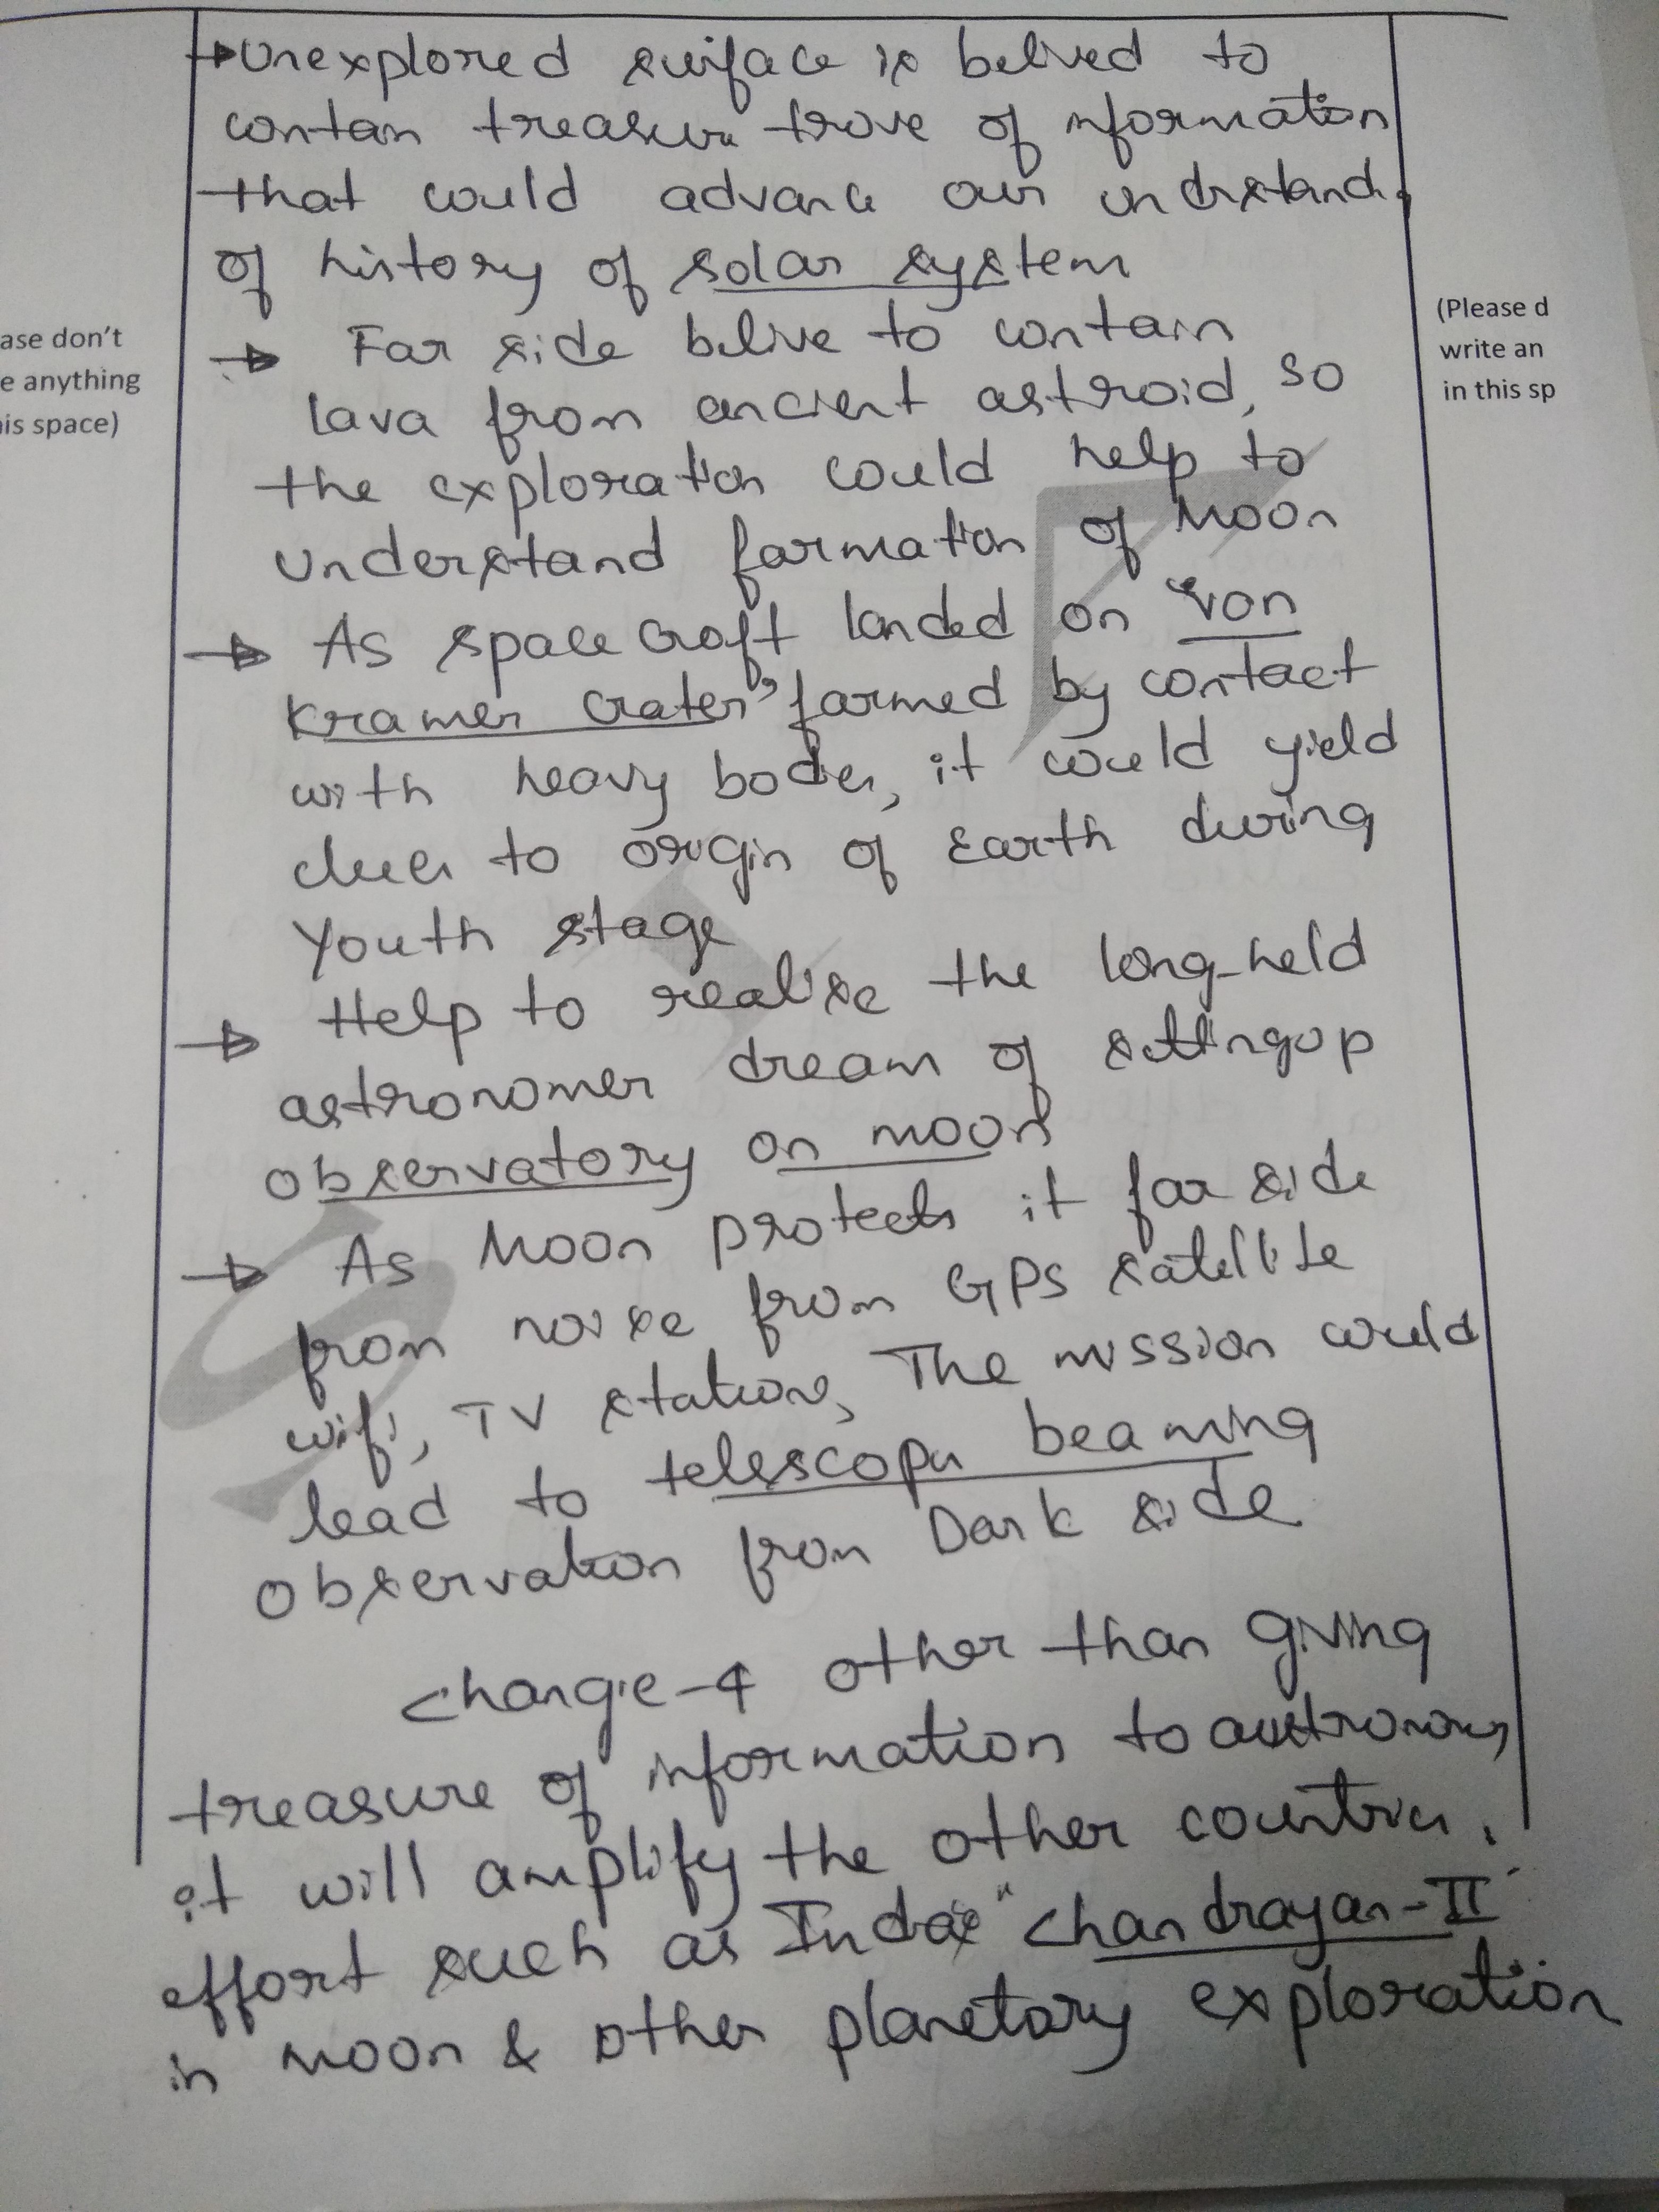 → Unexplored surface is belived to
contain treasure trove of information
that would advance our undrstand.
of history of solar system
→ Far side belive to contain
lava from ancient astroid, so
the exploration could help to
understand formation of Moon
→ As space craft landed on "Von
Kramer Crater" formed by contact
with heavy bodies, it could yield
clues to origin of Earth during
Youth stage
→ Help to realise the long-held
astronomer dream of setting up
observatory on moon
→ As Moon protects it far side
from noise from GPS satellite
wifi, TV stations, The mission could
lead to telescope beaming
observation from Dark side
Chang'e-4 other than giving
treasure of information to
it will amplify the other countries.
effort such as India "Chandrayan-II"
in Moon & other planetary exploration
ase don't
e anything
is space)
(Please d
write an
in this sp